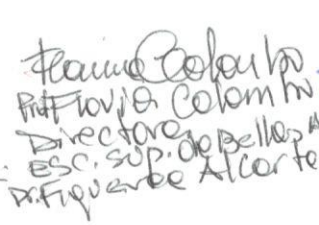 Prof. Flavia Colombo
Directora
Esc. Sup. de Bellas A
Dr. Figueroa Alcorta